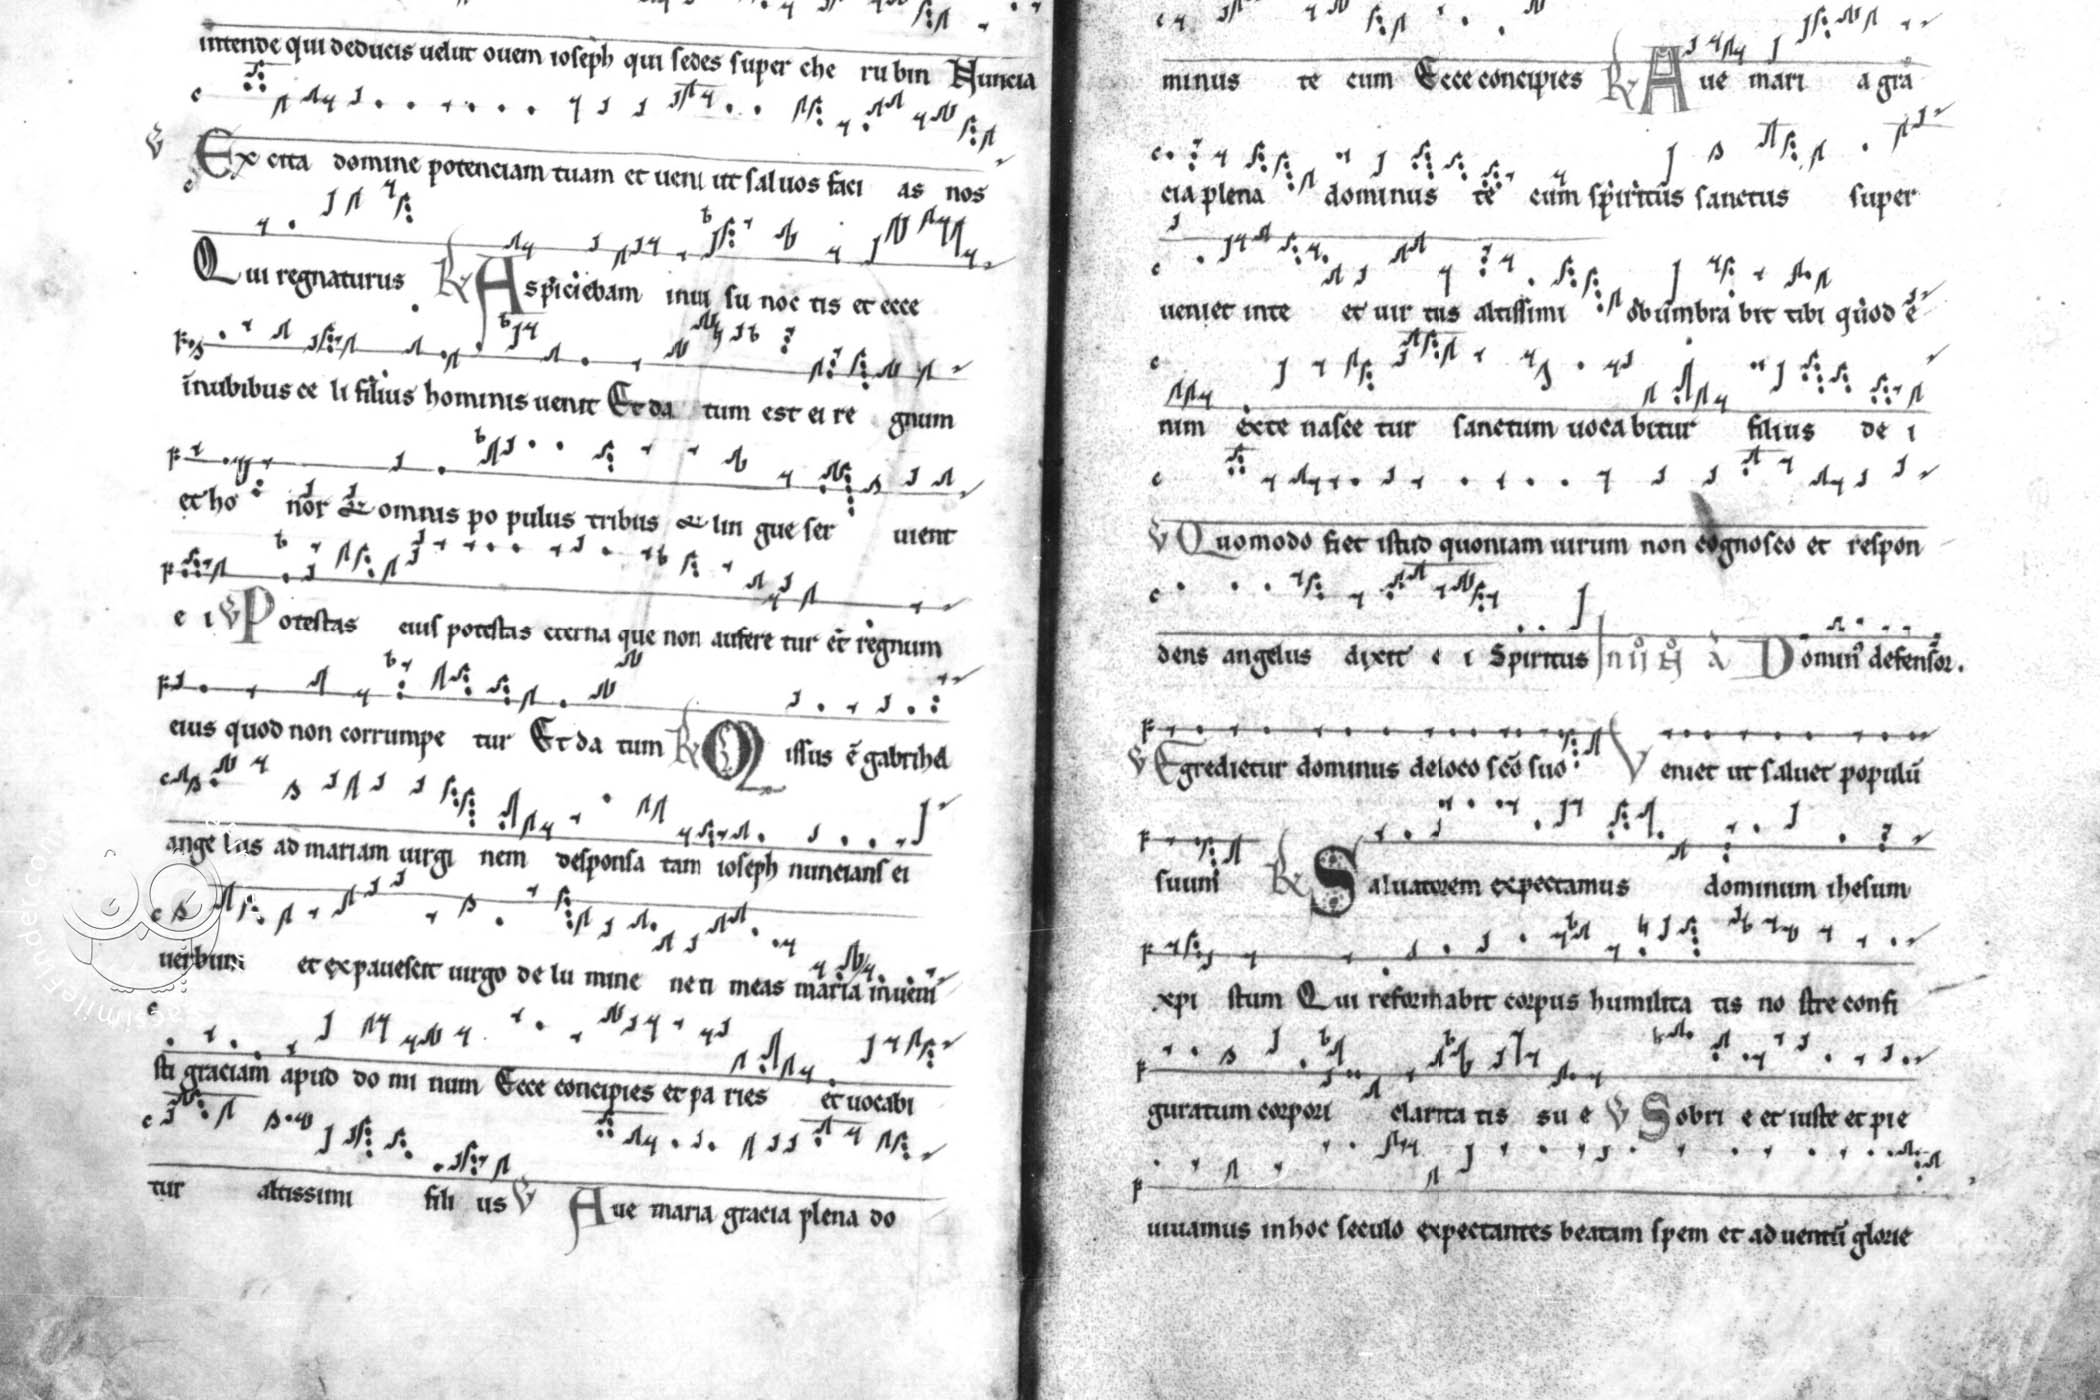 intende qui deducis uelut ouem ioseph qui sedes super che ru bin Nuncia
℣ Ex cita domine potenciam tuam et ueni ut saluos faci as nos
Qui regnaturus ℟ Aspiciebam in uisu noc tis et ecce
in nubibus ce li filius hominis uenit Et da tum est ei re gnum
et ho nor & omnis po pulus tribus & lin gue ser uient
e i ℣ Potestas eius potestas eterna que non aufere tur et regnum
eius quod non corrumpe tur Et da tum ℟ Missus ē gabrihel
ange lus ad mariam uirgi nem desponsa tam ioseph nuncians ei
uerbum et expauescit uirgo de lu mine ne ti meas maria inueni
sti graciam apud do mi num Ecce concipies et pa ries et uocabi
tur altissimi fili us ℣ Aue maria gracia plena do
minus te cum Ecce concipies ℟ Aue mari a gra
cia plena dominus te cum spiritus sanctus super
ueniet in te et uir tus altissimi obumbra bit tibi quod e
nim ex te nasce tur sanctum uoca bitur filius de i
℣ Quomodo fiet istud quoniam uirum non cognosco et respon
dens angelus dixit e i Spiritus Domin defensor.
℣ Egredietur dominus de loco scō suo Veniet ut saluet populū
suum ℟ Saluatorem expectamus dominum ihesum
xpi stum Qui reformabit corpus humilita tis no stre confi
guratum corpori clarita tis su e ℣ Sobri e et iuste et pie
uiuamus in hoc seculo expectantes beatam spem et aduentū glorie
facsimilefinder.com